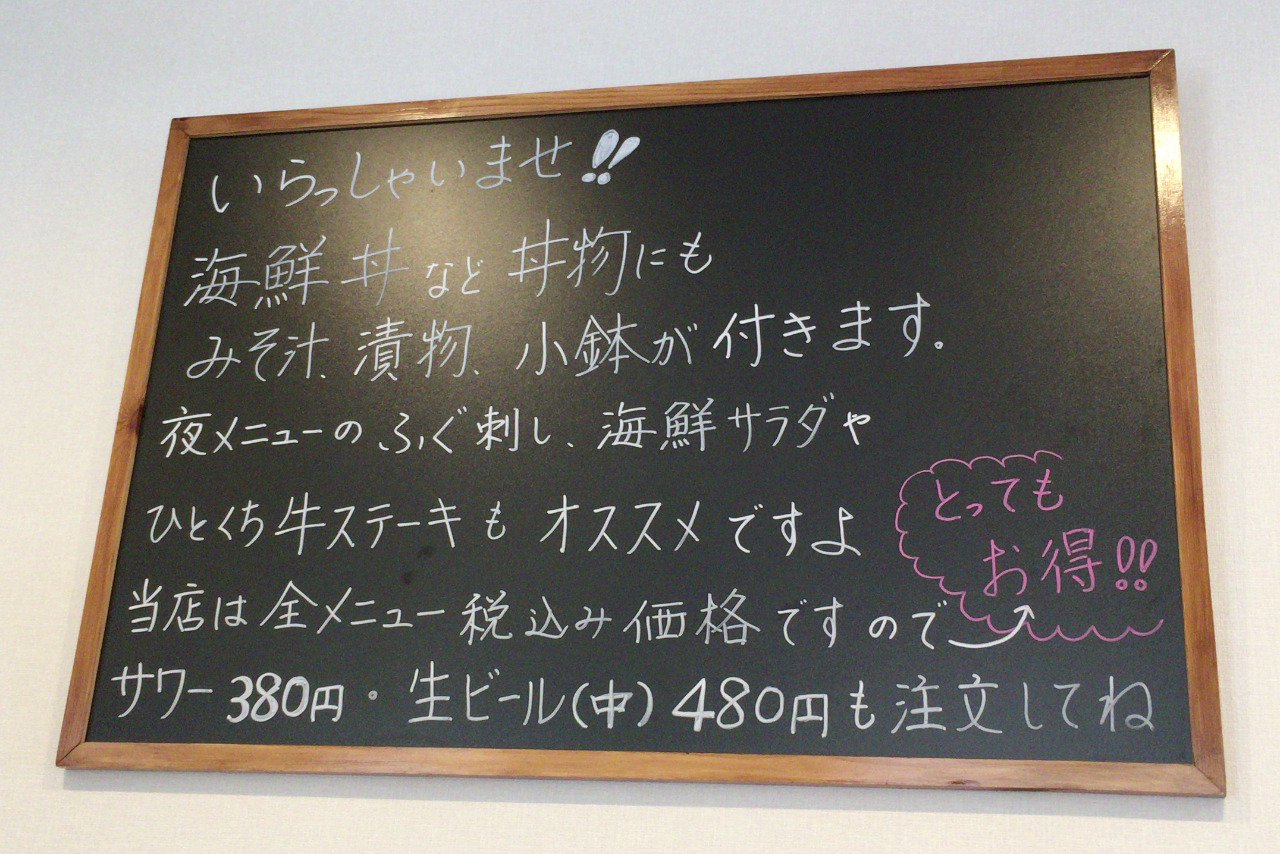 いらっしゃいませ!!
海鮮丼など丼物にも
みそ汁、漬物、小鉢が付きます。
夜メニューのふぐ刺し、海鮮サラダや
ひとくち牛ステーキもオススメですよ
当店は全メニュー税込み価格ですので
とっても
お得!!
サワー380円・生ビール(中)480円も注文してね